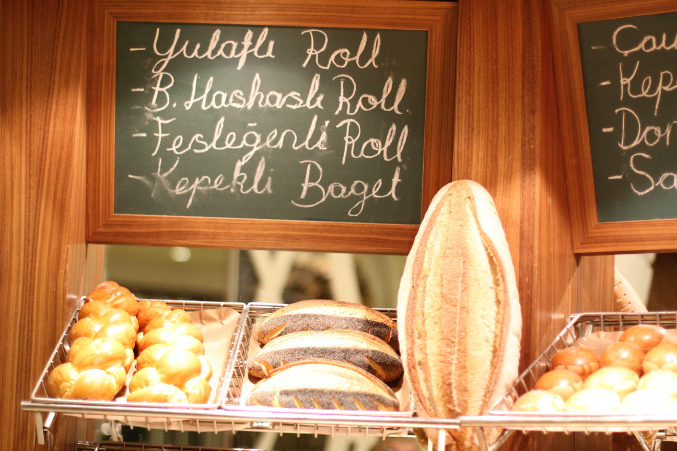 - Yulaflı Roll
- B. Haşhaşlı Roll.
- Fesleğenli Roll
- Kepekli Baget